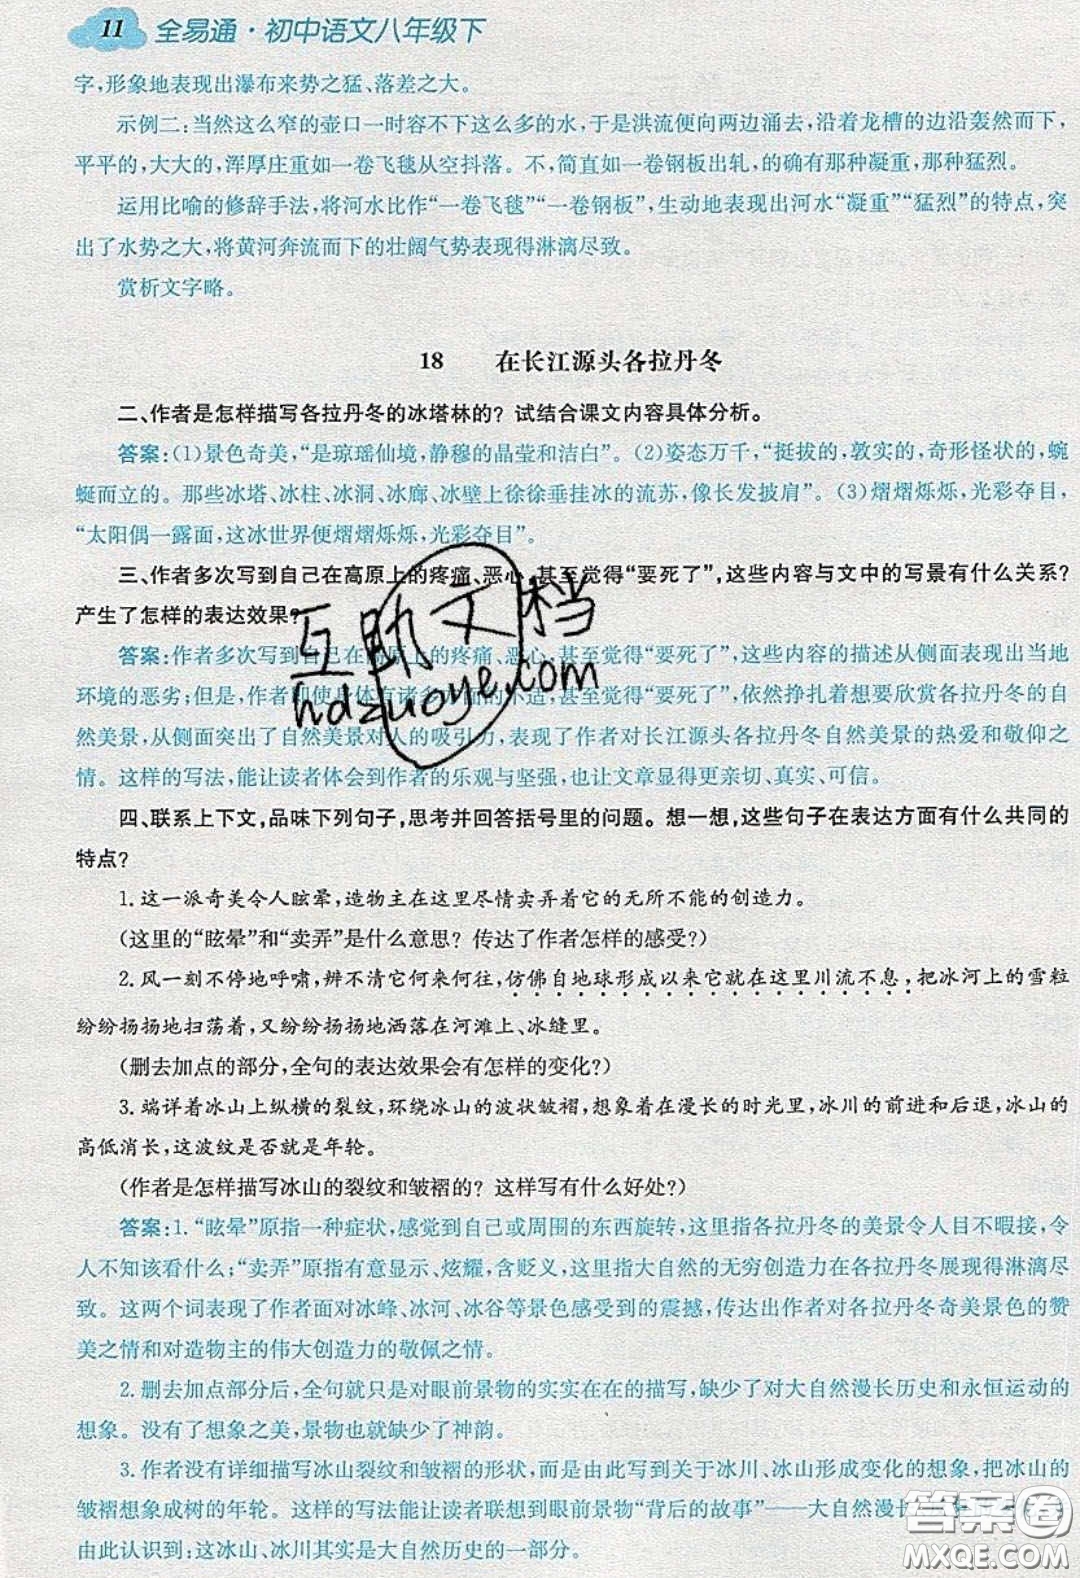 11 全易通·初中语文八年级下
字,形象地表现出瀑布来势之猛、落差之大。
示例二:当然这么窄的壶口一时容不下这么多的水,于是洪流便向两边涌去,沿着龙槽的边沿轰然而下,
平平的,大大的,浑厚庄重如一卷飞毯从空抖落。不,简直如一卷钢板出轧,的确有那种凝重,那种猛烈。
运用比喻的修辞手法,将河水比作“一卷飞毯”“一卷钢板”,生动地表现出河水“凝重”“猛烈”的特点,突
出了水势之大,将黄河奔流而下的壮阔气势表现得淋漓尽致。
赏析文字略。
18 在长江源头各拉丹冬
二、作者是怎样描写各拉丹冬的冰塔林的?试结合课文内容具体分析。
答案:(1)景色奇美,“是琼瑶仙境,静穆的晶莹和洁白”。(2)姿态万千,“挺拔的,敦实的,奇形怪状的,蜿
蜒而立的。那些冰塔、冰柱、冰洞、冰廊、冰壁上徐徐垂挂冰的流苏,像长发披肩”。(3)熠熠烁烁,光彩夺目,
“太阳偶一露面,这冰世界便熠熠烁烁,光彩夺目”。
三、作者多次写到自己在高原上的疼痛、恶心,甚至觉得“要死了”,这些内容与文中的写景有什么关系?
产生了怎样的表达效果?
答案:作者多次写到自己在高原上的疼痛、恶心,甚至觉得“要死了”,这些内容的描述从侧面表现出当地
环境的恶劣;但是,作者即使身体有诸多方面的不适,甚至觉得“要死了”,依然挣扎着想要欣赏各拉丹冬的自
然美景,从侧面突出了自然美景对人的吸引力,表现了作者对长江源头各拉丹冬自然美景的热爱和敬仰之
情。这样的写法,能让读者体会到作者的乐观与坚强,也让文章显得更亲切、真实、可信。
四、联系上下文,品味下列句子,思考并回答括号里的问题。想一想,这些句子在表达方面有什么共同的
特点?
1.这一派奇美令人眩晕,造物主在这里尽情卖弄着它的无所不能的创造力。
(这里的“眩晕”和“卖弄”是什么意思?传达了作者怎样的感受?)
2.风一刻不停地呼啸,辨不清它何来何往,仿佛自地球形成以来它就在这里川流不息,把冰河上的雪粒
纷纷扬扬地扫荡着,又纷纷扬扬地洒落在河滩上、冰缝里。
(删去加点的部分,全句的表达效果会有怎样的变化?)
3.端详着冰山上纵横的裂纹,环绕冰山的波状皱褶,想象着在漫长的时光里,冰川的前进和后退,冰山的
高低消长,这波纹是否就是年轮。
(作者是怎样描写冰山的裂纹和皱褶的?这样写有什么好处?)
答案:1.“眩晕”原指一种症状,感觉到自己或周围的东西旋转,这里指各拉丹冬的美景令人目不暇接,令
人不知该看什么;“卖弄”原指有意显示、炫耀,含贬义,这里指大自然的无穷创造力在各拉丹冬展现得淋漓尽
致。这两个词表现了作者面对冰峰、冰河、冰谷等景色感受到的震撼,传达出作者对各拉丹冬奇美景色的赞
美之情和对造物主的伟大创造力的敬佩之情。
2.删去加点部分后,全句就只是对眼前景物的实实在在的描写,缺少了对大自然漫长历史和永恒运动的
想象。没有了想象之美,景物也就缺少了神韵。
3.作者没有详细描写冰山裂纹和皱褶的形状,而是由此写到关于冰川、冰山形成变化的想象,把冰山的
皱褶想象成树的年轮。这样的写法能让读者联想到眼前景物“背后的故事”——大自然漫长
由此认识到:这冰山、冰川其实是大自然历史的一部分。
互助文档
hdzuoye.com
答案圈
MXQE.COM